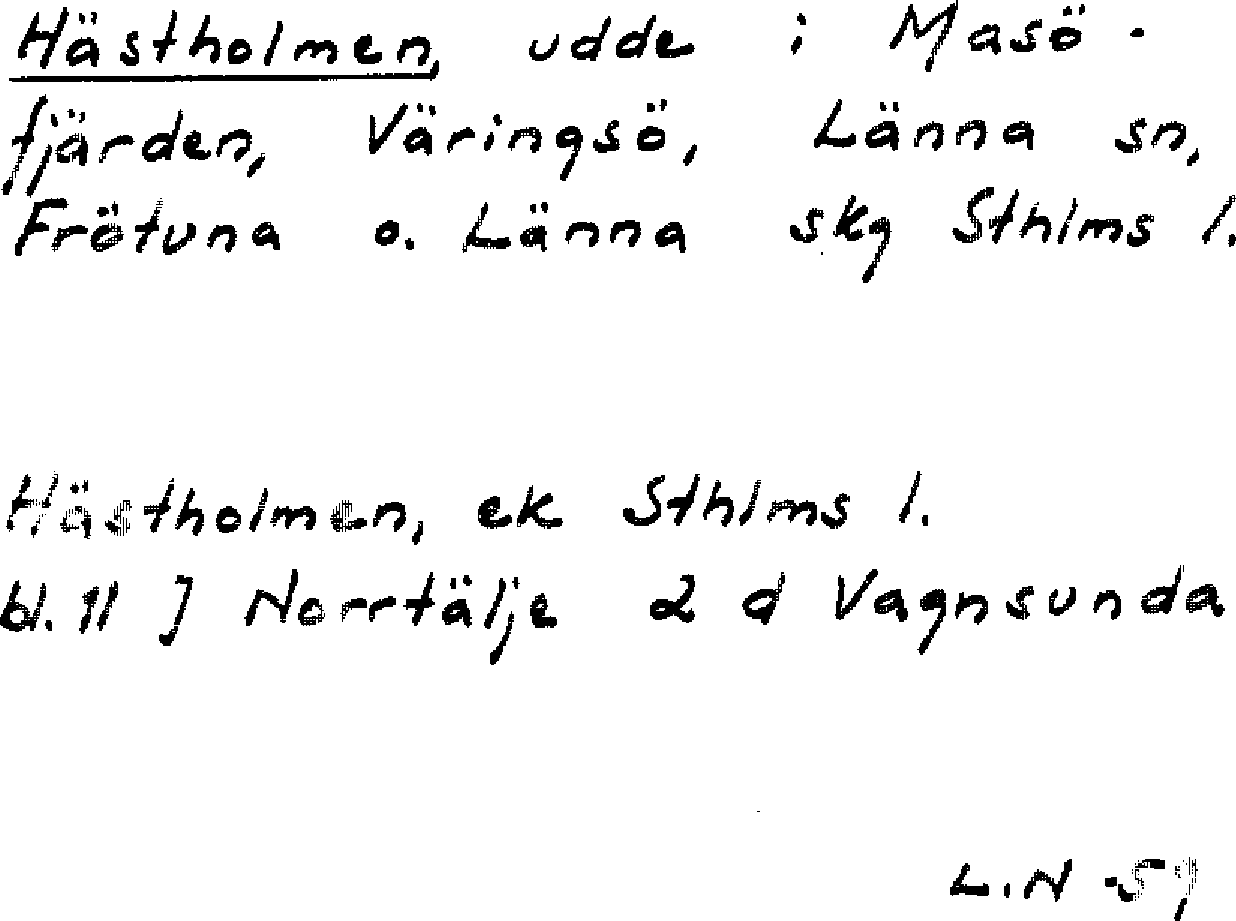 Hästholmen, udde i Masö-
fjärden, Väringsö, Länna sn,
Frötuna o. Länna skg Sthlms l.
Hästholmen, ek Sthlms l.
bl. 11 J Norrtälje 2 d Vagnsunda
L.N -59